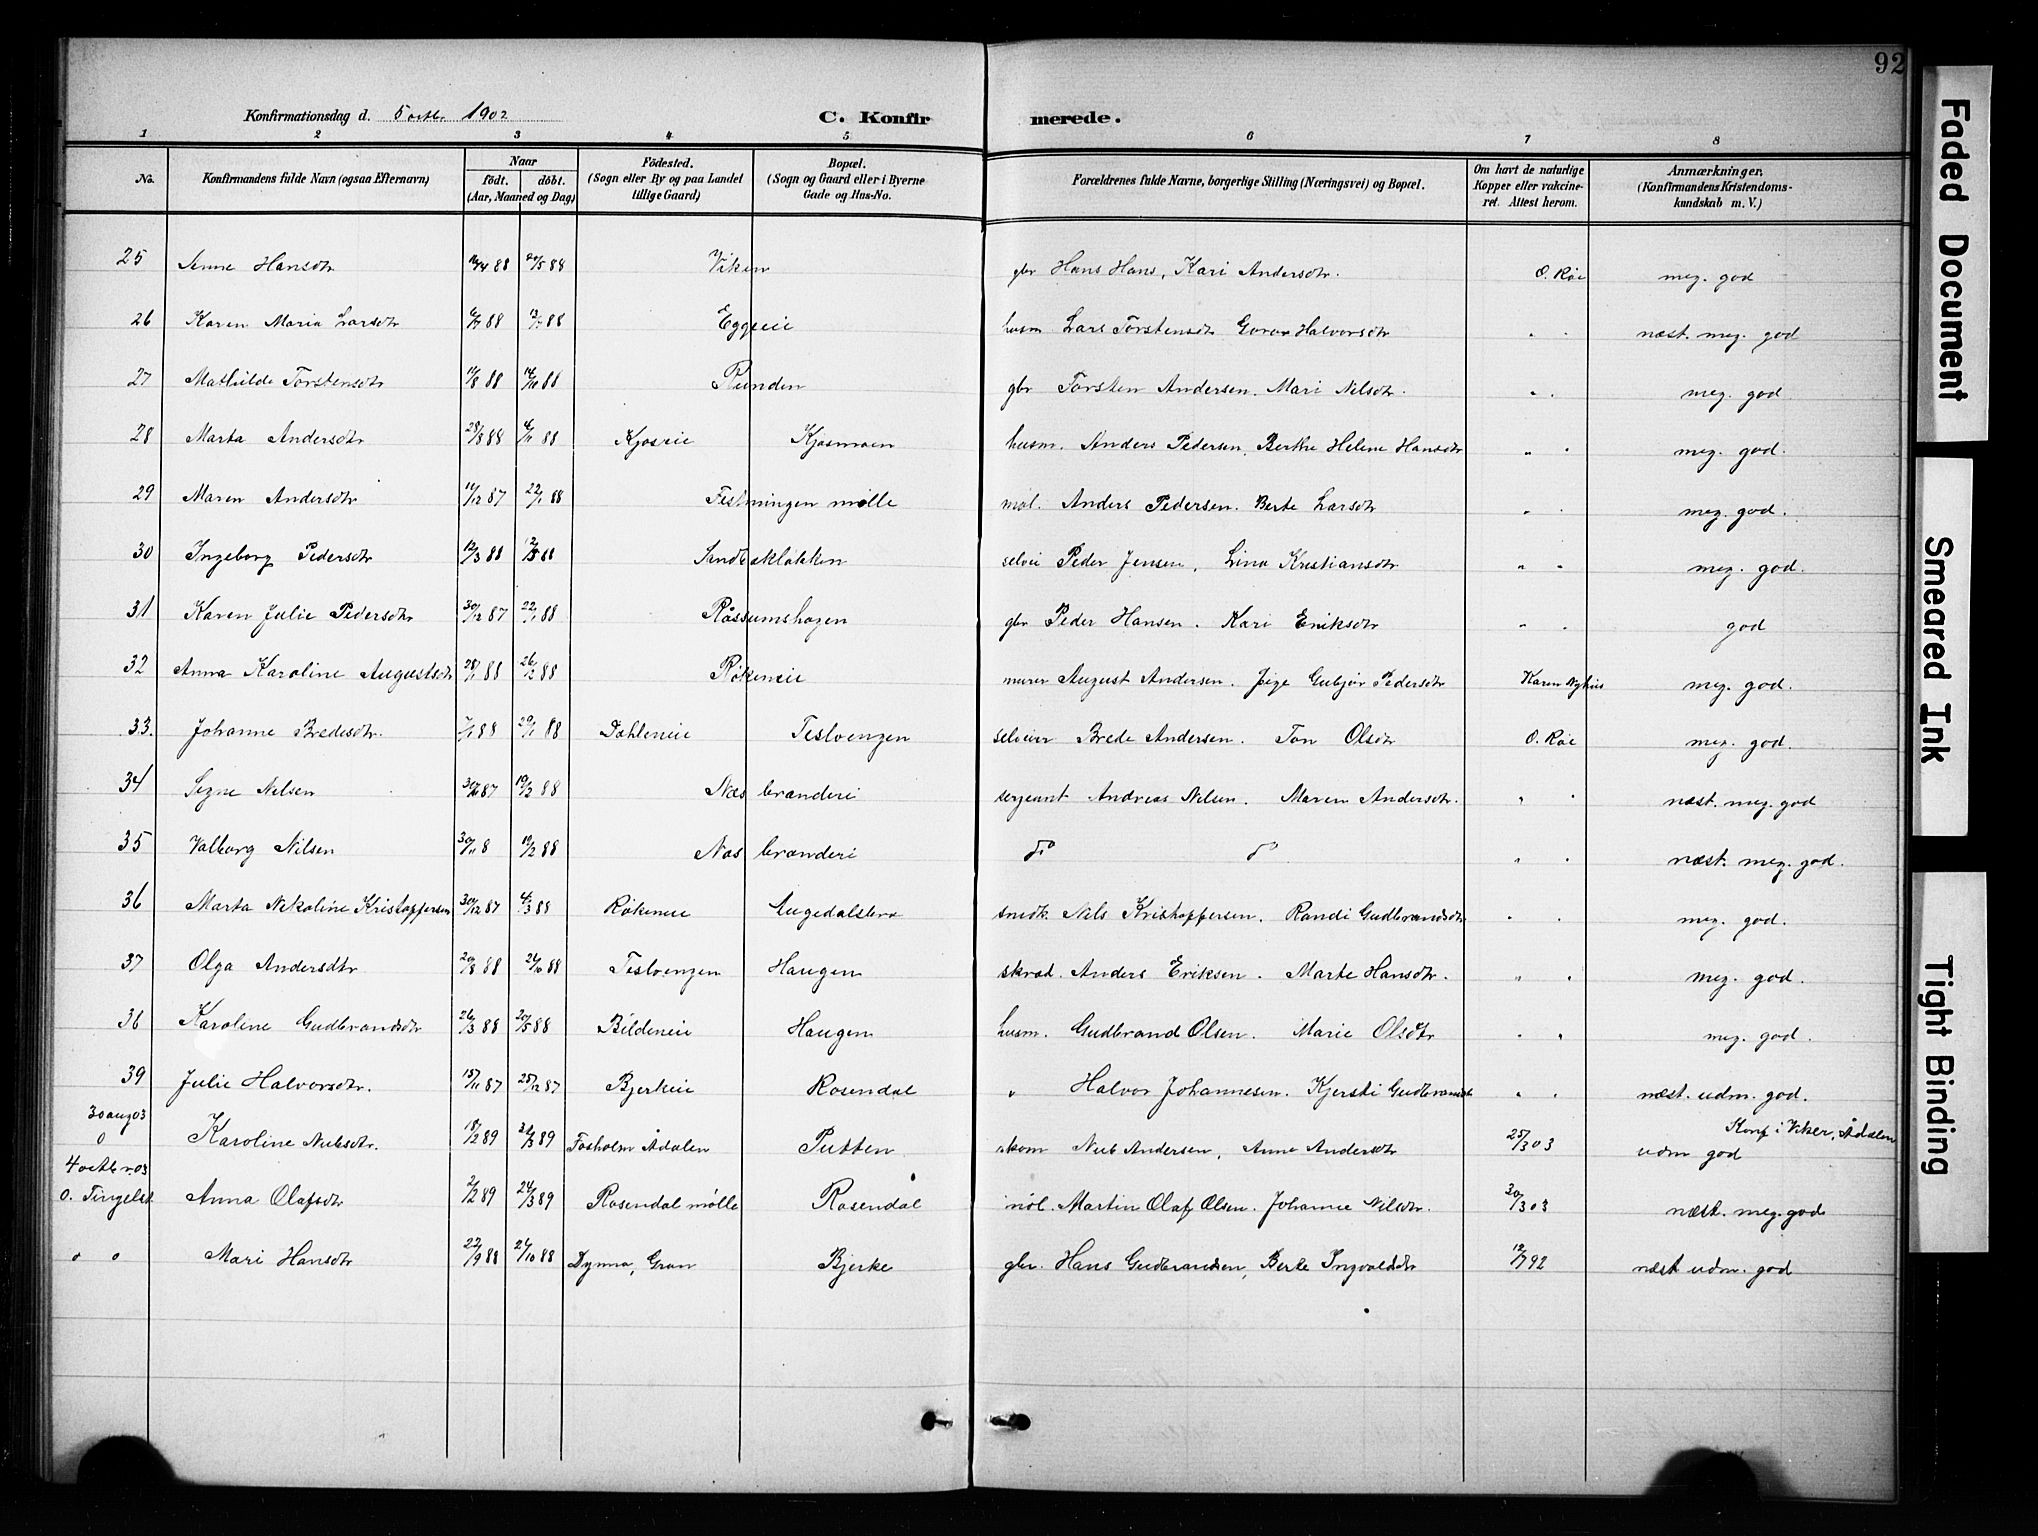 92
Konfirmationsdag d. 5 octbr. 1902 C. Konfir merede.
1 2 3 4 5 6 7 8
No. Konfirmandens fulde Navn (ogsaa Efternavn) Naar født. døbt. (Aar, Maaned og Dag) Födested. (Sogn eller By og paa Landet tillige Gaard) Bopæl. (Sogn og Gaard eller i Byerne Gade og Hus-No. Forældrenes fulde Navne, borgerlige Stilling (Næringsvei) og Bopæl. Om havt de naturlige Kopper eller vakcineret. Attest herom. Anmærkninger. (Konfirmandens Kristendomskundskab m. V.)
25 Anne Hansdtr 88 88 Viken gbr Hans Hans, Kari Andersdtr. O. Røe meg. god
26 Karen Maria Larsdtr 88 88 Eggeeie husm Lars Torstensdtr Goro Halvorsdtr " " næst. meg. god
27 Mathilde Torstensdtr 11/8 88 14/10 88 Runden gbr Torsten Andersen. Mari Nilsdtr. " " meg. god
28 Marta Andersdtr 28/8 88 88 Kjoseie Kjosmoen husm. Anders Pedersen, Berthe Helene Hansdtr " " meg. god.
29 Maren Andersdtr 11/12 87 22/1 88 Festningen mølle møl. Anders Pedersen. Berte Larsdtr " " meg. god.
30 Ingeborg Pedersdtr 12/3 88 88 Sandbakløkken selvei Peder Jensen, Lina Kristiansdtr " " meg. god.
31 Karen Julie Pedersdtr 30/12 87 22/1 88 Råssumshagen gbr Peder Hansen. Kari Eriksdtr " " god
32 Anna Karoline Augustsdtr 28/1 88 26/2 88 Røkeneie murer August Andersen. Gubjør Pedersdtr Karen Nyhus meg. god.
33. Johanne Bredesdtr. 7/1 88 29/1 88 Dahleneie Teslvengen selveier Brede Andersen. Ton Olsdtr O. Røe meg. god.
34 Signe Nilsen 87 19/2 88 Næs brænderi sergeant Andreas Nilsen. Maren Andersdtr. " " næst. meg. god
35 Valborg Nilsen 30/11 8 19/2 88 Næs brænderi do do " " næst. meg. god.
36 Marta Nikoline Kristoffersen 30/12 87 4/3 88 Røkeneie Augedalsbro snedk. Nils Kristoffersen. Randi Gudbrandsdtr " " meg. god.
37 Olga Andersdtr 20/8 88 21/10 88 Teslvengen Haugen skræd. Anders Eriksen. Marte Hansdtr. " " meg. god.
38 Karoline Gudbrandsdtr 26/3 88 20/5 88 Bildeneie Haugen husm. Gudbrand Olsen. Marie Olsdtr " " meg. god.
39 Julie Halvorsdtr. 15/11 87 25/12 87 Bjerkeie Rosendal " Halvor Johannesen. Kjersti Gudbrandsdtr " " næst. udm. god.
30 aug 03
0 Karoline Nielsdtr. 18/2 89 89 Fosholm Ådalen Putten skom Niels Andersen, Anne Andersdtr 25/3 03 Konf i Viker, Ådalen udm god
4 octbr. 03
0. Tingelst Anna Olafsdtr 2/2 89 24/3 89 Rosendal mølle Rosendal møl. Martin Olaf Olsen. Johanne Nilsdtr. 30/3 03 næst. meg. god
" " Mari Hansdtr 22/9 88 21/10 88 Dynna, Gran Bjerke gbr. Hans Gudbrandsen, Berte Ingvoldsdtr 12/7 92 næst udm. god
Faded Document
Smeared Ink
Tight Binding